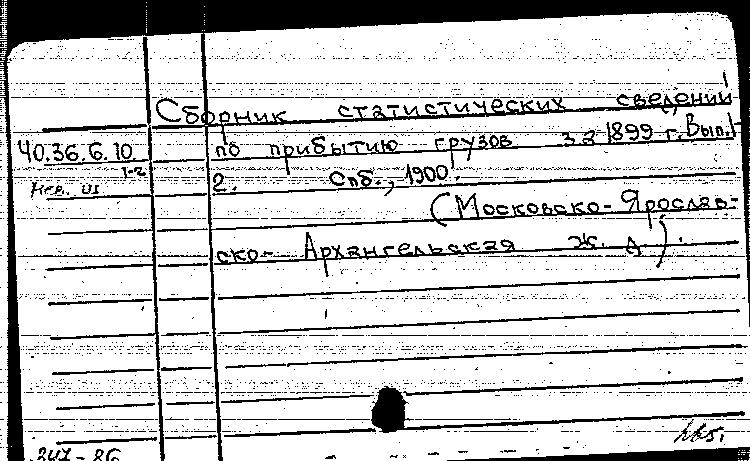 Сборник статистических сведений
40.36.6.10 по прибытию грузов за 1899 г. Вып. 1-
1-2
2. Спб., 1900.
(Московско-Ярослав-
ско-Архангельская ж. д).
247-86